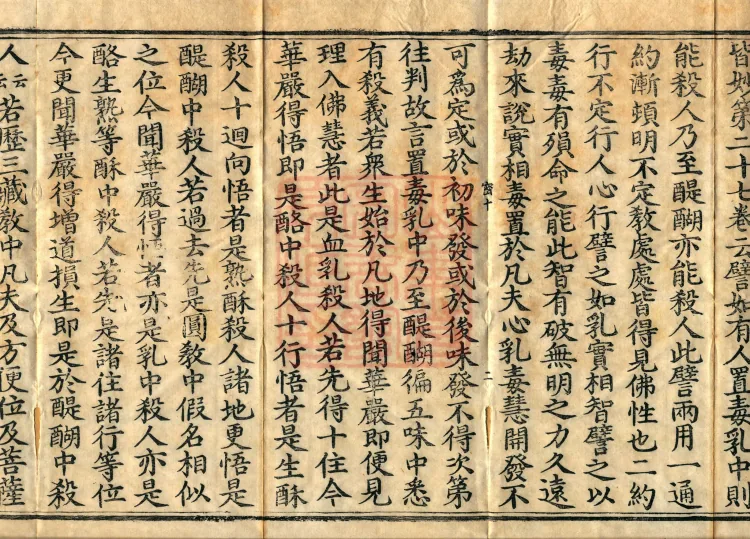 皆如第二十七卷云譬如有人置毒乳中則
能殺人乃至醍醐亦能殺人此譬兩用一通
約漸頓明不定教處處皆得見佛性也二約
行不定行人心行譬之如乳實相智譬之以
毒毒有殞命之能此智有破無明之力久遠
劫來說實相毒置於凡夫心乳毒慧開發不
可爲定或於初味發或於後味發不得次第
往判故言置毒乳中乃至醍醐徧五味中悉
有殺義若衆生始於凡地得聞華嚴即便見
理入佛慧者此是血乳殺人若先得十住今
華嚴得悟即是酪中殺人十行悟者是生酥
殺人十迴向悟者是熟酥殺人諸地更悟是
醍醐中殺人若過去先是圓教中假名相似
之位今聞華嚴得悟者亦是乳中殺人亦是
酪生熟等酥中殺人若先是諸住諸行等位
今更聞華嚴得增道損生即是於醍醐中殺
人云云若歷三藏教中凡夫及方便位及菩薩